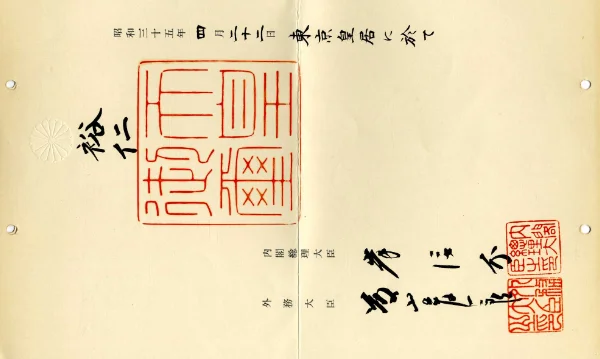 昭和三十五年四月二十二日東京皇居に於て
裕仁
天皇御璽
内閣総理大臣 岸信介
外務大臣 藤山愛一郎